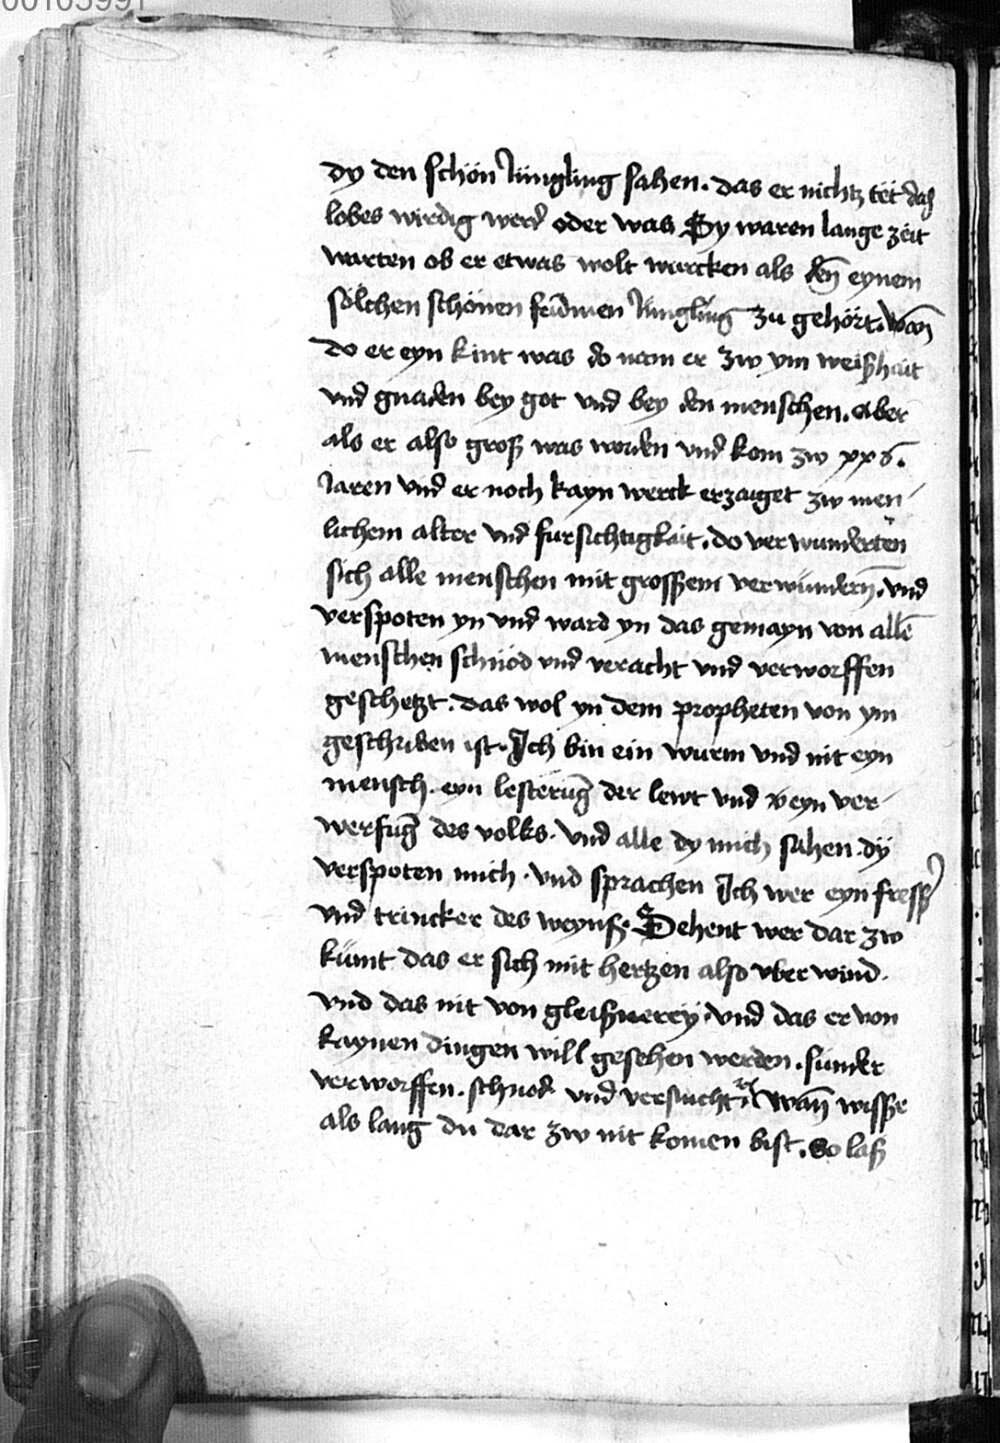 00103991
dy den schön Jüngling sahen. das er nichtz tët das
lobes wirdig werd oder was Sy waren lange zeit
warten ob er etwas wolt wurcken als den eynem
sölchen schönen frümen Jüngling zu gehört. Wan̄
do er eyn kint was do nam er zw vm weißhait
vnd gnaden bey got vnd bey den menschen. Aber
als er also groß was worden vnd kom zw xxx.
Jaren vnd er noch kayn werck erzaiget zw men
lichem alter vnd fursichtigkait. do verwunderten
sich alle menschen mit grossem verwündern̄. vnd
verspoten yn vnd ward yn das gemayn von allē
menschen schnöd vnd veracht vnd verworffen
geschetzt. das wol yn dem propheten von ym
geschriben ist. Ich bin ein wurm vnd nit eyn
mensch. eyn lesterūg der lewt vnd eyn ver
werfūg des volks. vnd alle dy mich sahen. dÿ
verspoten mich. vnd sprachen Ich wer eyn fresser
vnd trincker des weynß. Sehent wer dar zw
kümt das er sich mit hertzen also vberwind.
vnd das nit von gleißnerey vnd das er von
kaynen dingen will gesehen werden. sunder
verworffen. schnod vnd versmecht Wan̄ wisse
als lang du dar zw nit komen bist. So laß